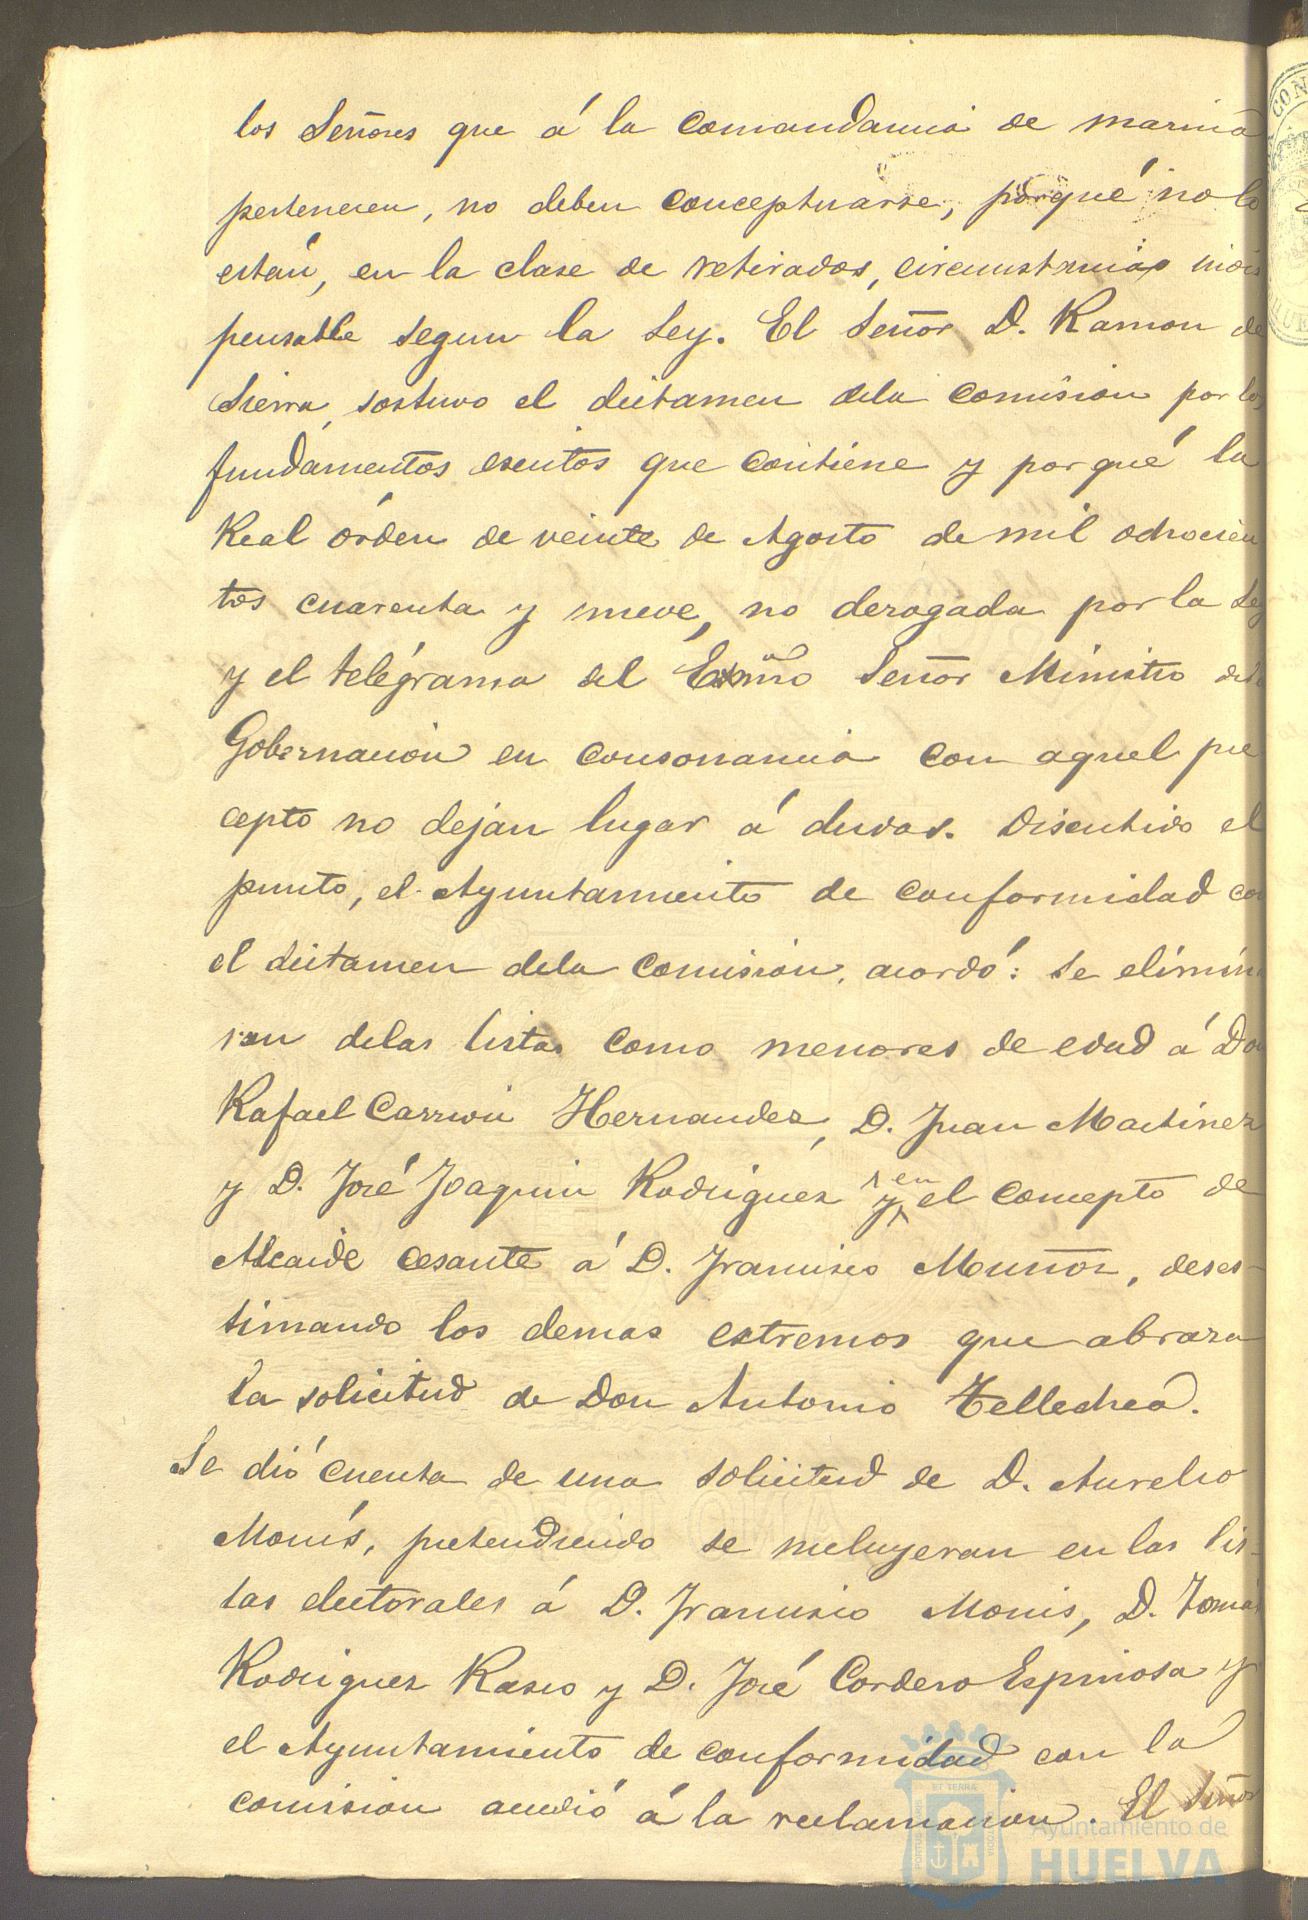 los Señores que á la comandancia de marina
pertenecen, no deben conceptuarse, porqué no lo
están, en la clase de retirados, circunstancias indis
pensable segun la Ley. El Señor D. Ramon de
Sierra, sostuvo el dictamen dela comision por los
fundamentos escritos que contiene y porqué la
Real órden de veinte de Agosto de mil ochocien
tos cuarenta y nueve, no derogada por la Ley
y el telégrama del Exmo Señor Ministro dela
Gobernacion en consonancia con aquel pre
cepto no dejan lugar á dudas. Discutido el
punto, el Ayuntamiento de conformidad con
el dictamen dela comision, acordó: se elimina
ran delas listas como menores de edad á Don
Rafael Hernandez, D. Juan Martinez
y D. José Joaquin Rodriguez y en el concepto de
Alcaide cesante á D. Francisco Muñoz, deses-
timando los demas estremos que abraza
la solicitud de Don Antonio Tellechea.
Se dió cuenta de una solicitud de D. Aurelio
Monís, pretendiendo se incluyeran en las lis-
tas electorales á D. Francisco Monis, D. Tomás
Rodriguez Rasco y D. José Cordero Espinosa y
el Ayuntamiento de conformidad con la
comision accedió á la reclamacion. El Señor
Ayuntamiento de
HUELVA